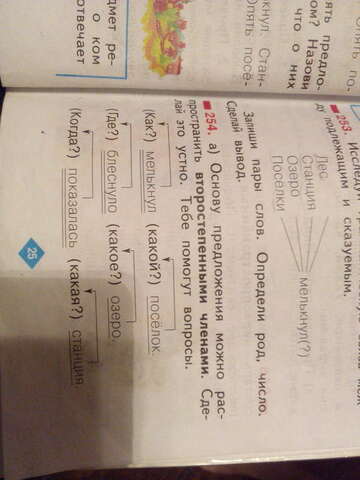 дмет ре-
о ком
отвечает
кнул. Стан-
Опять посё-
ять предло-
ом? Назови
что о них
253. Исследуй
ду подлежащим и сказуемым.
Лес
Станция
Озеро
Посёлки
мелькнул(?)
Запиши пары слов. Определи род, число.
Сделай вывод.
254. а) Основу предложения можно рас-
пространить второстепенными членами. Сде-
лай это устно. Тебе помогут вопросы.
(Как?) мелькнул (какой?) посёлок.
(Где?) блеснуло (какое?) озеро.
(Когда?) показалась (какая?) станция.
25